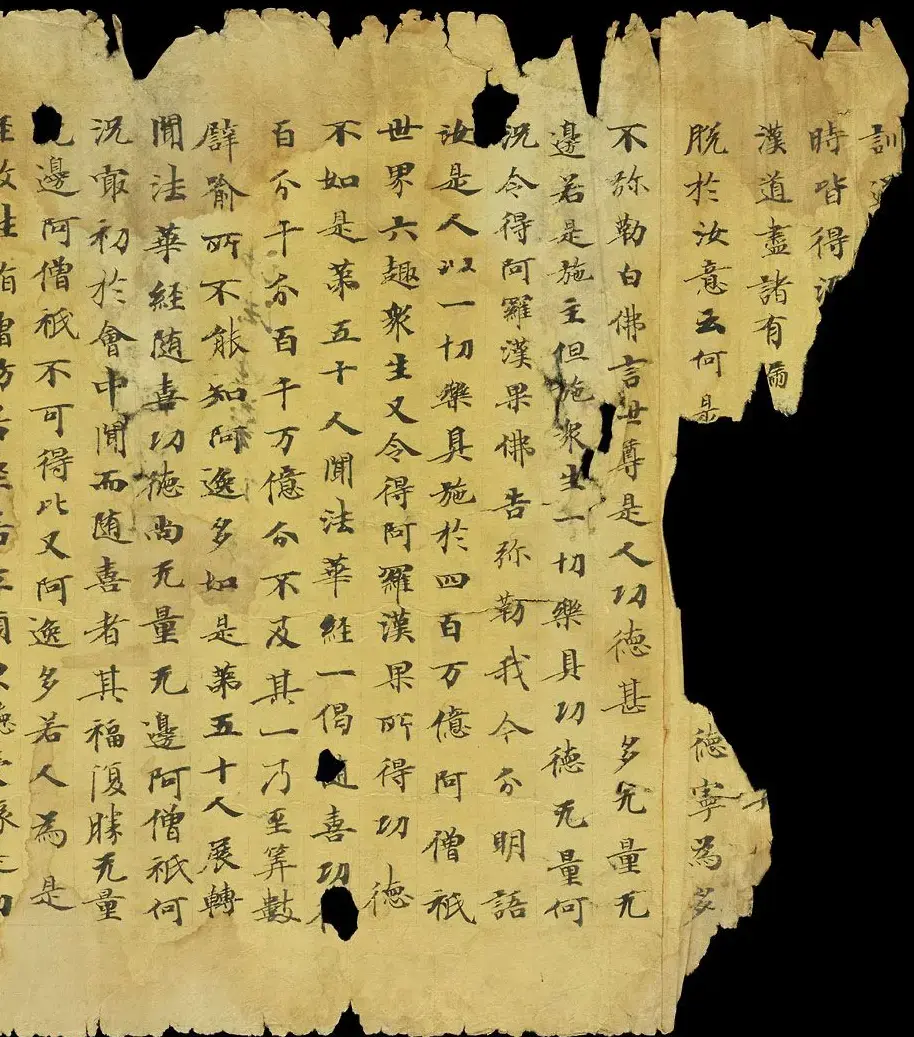 訓
時皆得
漢道盡諸有漏
脫於汝意云何是 德寧為多
不弥勒白佛言世尊是人功德甚多无量无
邊若是施主但施衆生一切樂具功德无量何
況令得阿羅漢果佛告弥勒我今分明語
汝是人以一切樂具施於四百万億阿僧祇
世界六趣衆生又令得阿羅漢果所得功德
不如是第五十人聞法華経一偈随喜功
百分千分百千万億分不及其一乃至筭數
譬喻所不能知阿逸多如是第五十人展轉
聞法華経随喜功德尚无量无邊阿僧祇何
況冣初於會中聞而随喜者其福復勝无量
邊阿僧祇不可得比又阿逸多若人為是